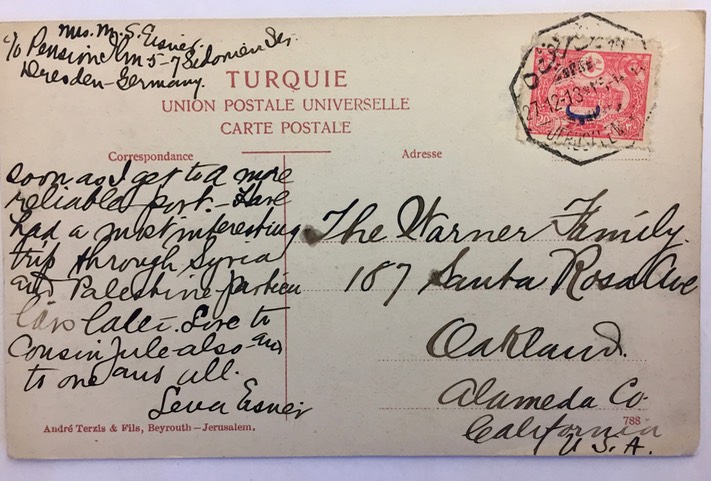 Mrs. M. S. Eisner.
c/o Pension Ilm 5-7 Str.
Dresden-Germany.
TURQUIE
UNION POSTALE UNIVERSELLE
CARTE POSTALE
27-12-13
JERUSALEM
Correspondance
Adresse
soon as I get to a more
reliable port. - Have
had a most interesting
trip through Syria
and Palestine
later. Love to
Cousin Jule also and
to one and all.
Eisner
The Warner Family.
187 Santa Rosa Ave
Oakland.
Alameda Co.
California
U.S.A.
André Terzis & Fils, Beyrouth—Jerusalem.
788